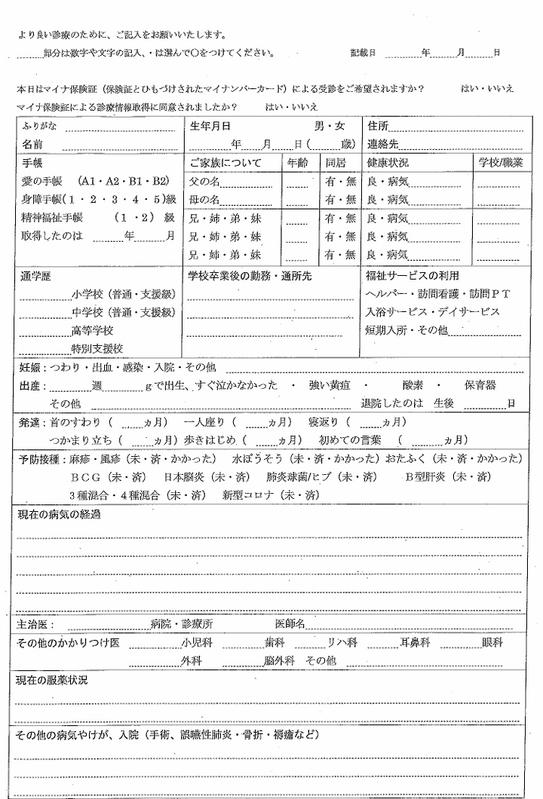 より良い診療のために、ご記入をお願いいたします。
部分は数字や文字の記入、・は選んで〇をつけてください。 記載日 年 月 日
本日はマイナ保険証（保険証とひもづけされたマイナンバーカード）による受診をご希望されますか？ はい・いいえ
マイナ保険証による診療情報取得に同意されましたか？ はい・いいえ
ふりがな 生年月日 男・女 住所
名前 年 月 日（ 歳） 連絡先
手帳 ご家族について 年齢 同居 健康状況 学校/職業
愛の手帳 （A1・A2・B1・B2） 父の名 有・無 良・病気
身障手帳（1・2・3・4・5）級 母の名 有・無 良・病気
精神福祉手帳 （1・2） 級 兄・姉・弟・妹 有・無 良・病気
取得したのは 年 月 兄・姉・弟・妹 有・無 良・病気
兄・姉・弟・妹 有・無 良・病気
通学歴 学校卒業後の勤務・通所先 福祉サービスの利用
小学校（普通・支援級） ヘルパー・訪問看護・訪問PT
中学校（普通・支援級） 入浴サービス・デイサービス
高等学校 短期入所・その他
特別支援校
妊娠：つわり・出血・感染・入院・その他
出産： 週 gで出生、すぐ泣かなかった ・ 強い黄疸 ・ 酸素 ・ 保育器
その他 退院したのは 生後 日
発達：首のすわり（ ヵ月） 一人座り（ ヵ月） 寝返り（ ヵ月）
つかまり立ち（ ヵ月）歩きはじめ（ ヵ月） 初めての言葉 （ ヵ月）
予防接種：麻疹・風疹（未・済・かかった） 水ぼうそう（未・済・かかった）おたふく（未・済・かかった）
BCG（未・済） 日本脳炎（未・済） 肺炎球菌/ヒブ（未・済） B型肝炎（未・済）
3種混合・4種混合（未・済） 新型コロナ（未・済）
現在の病気の経過
主治医： 病院・診療所 医師名
その他のかかりつけ医 小児科 歯科 リハ科 耳鼻科 眼科
外科 脳外科 その他
現在の服薬状況
その他の病気やけが、入院（手術、誤嚥性肺炎・骨折・褥瘡など）